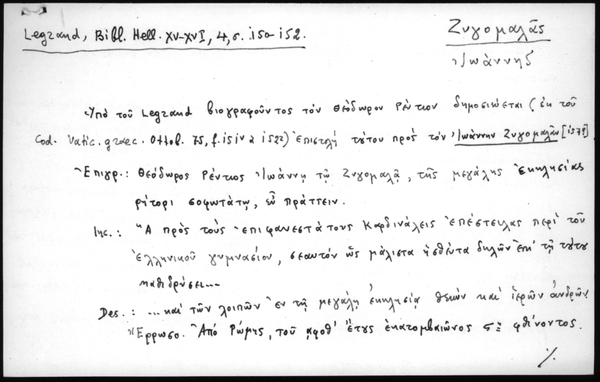 Legrand, Bibl. Hell. XV-XVI, 4, σ. 150-152.
Ζυγομαλᾶς
Ἰωάννης
Ὑπὸ τοῦ Legrand βιογραφοῦντος τὸν Θεόδωρον Ρέντιον δημοσιεύεται (ἐκ τοῦ
Cod. Vatic. graec. Ottob. 75, f. 151v à 152r) ἐπιστολὴ τούτου πρὸς τὸν Ἰωάννην Ζυγομαλᾶν [1579]
Ἐπιγρ.: Θεόδωρος Ρέντιος Ἰωάννῃ τῷ Ζυγομαλᾷ, τῆς μεγάλης ἐκκλησίας
ρήτορι σοφωτάτῳ, εὖ πράττειν.
Inc.: Ἃ πρὸς τοὺς ἐπιφανεστάτους Καρδινάλεις ἐπέστειλας περὶ τοῦ
ἑλληνικοῦ γυμνασίου, σεαυτὸν ὡς μάλιστα ἡσθέντα δηλῶν ἐπὶ τῇ τούτου
καθιδρύσει...
Des.: ... καὶ τῶν λοιπῶν ἐν τῇ μεγάλῃ ἐκκλησίᾳ θείων καὶ ἱερῶν ἀνδρῶν
Ἔρρωσο. Ἀπὸ Ρώμης, τοῦ ͵αφοθʹ ἔτους ἑκατομβαιῶνος φθίνοντος.
%